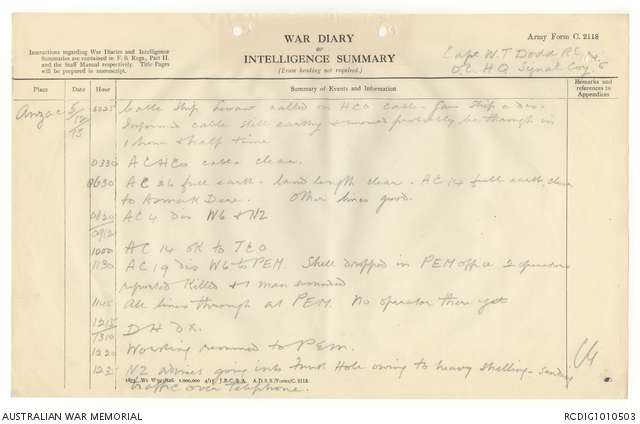 WAR DIARY
or
INTELLIGENCE SUMMARY
(Erase heading not required.)
Army Form C. 2118
Instructions regarding War Diaries and Intelligence
Summaries are contained in F. S. Regs., Part II.
and the Staff Manual respectively. Title Pages
will be prepared in manuscript.
Capt W. T Dodd R.E
O.C. H Q Signal Coy
Place Date Hour Summary of Events and Information Remarks and references to Appendices
Anzac 5/12/15 0025 Cable Ship Levant called on HCO cable. Gave Ship a des.
Informed cable still earthy & would probably be through in
1 hour & half time
0330 AC HCO cable clear.
0630 AC 26 full earth. land length clear. AC 14 full earth, clear
to Asmack Dere. Other lines good.
0820/0912 AC 4 Dis W6 & NZ
1000 AC 14 OK to TCO
1130 AC 19 dis W6 to PEM. Shell dropped in PEM office 2 operators
reported Killed & 1 man wounded
1145 All lines through at PEM. No operator there yet
1215/1310 DH DX.
1220 Working resumed to PEM.
123 NZ advises going into Hole owing to heavy shelling - sending
traffic over telephone.
1,000,000 4/15 J.B.C.&A. A.D.S.S./Forms/C. 2118.
AUSTRALIAN WAR MEMORIAL
RCDIG1010503